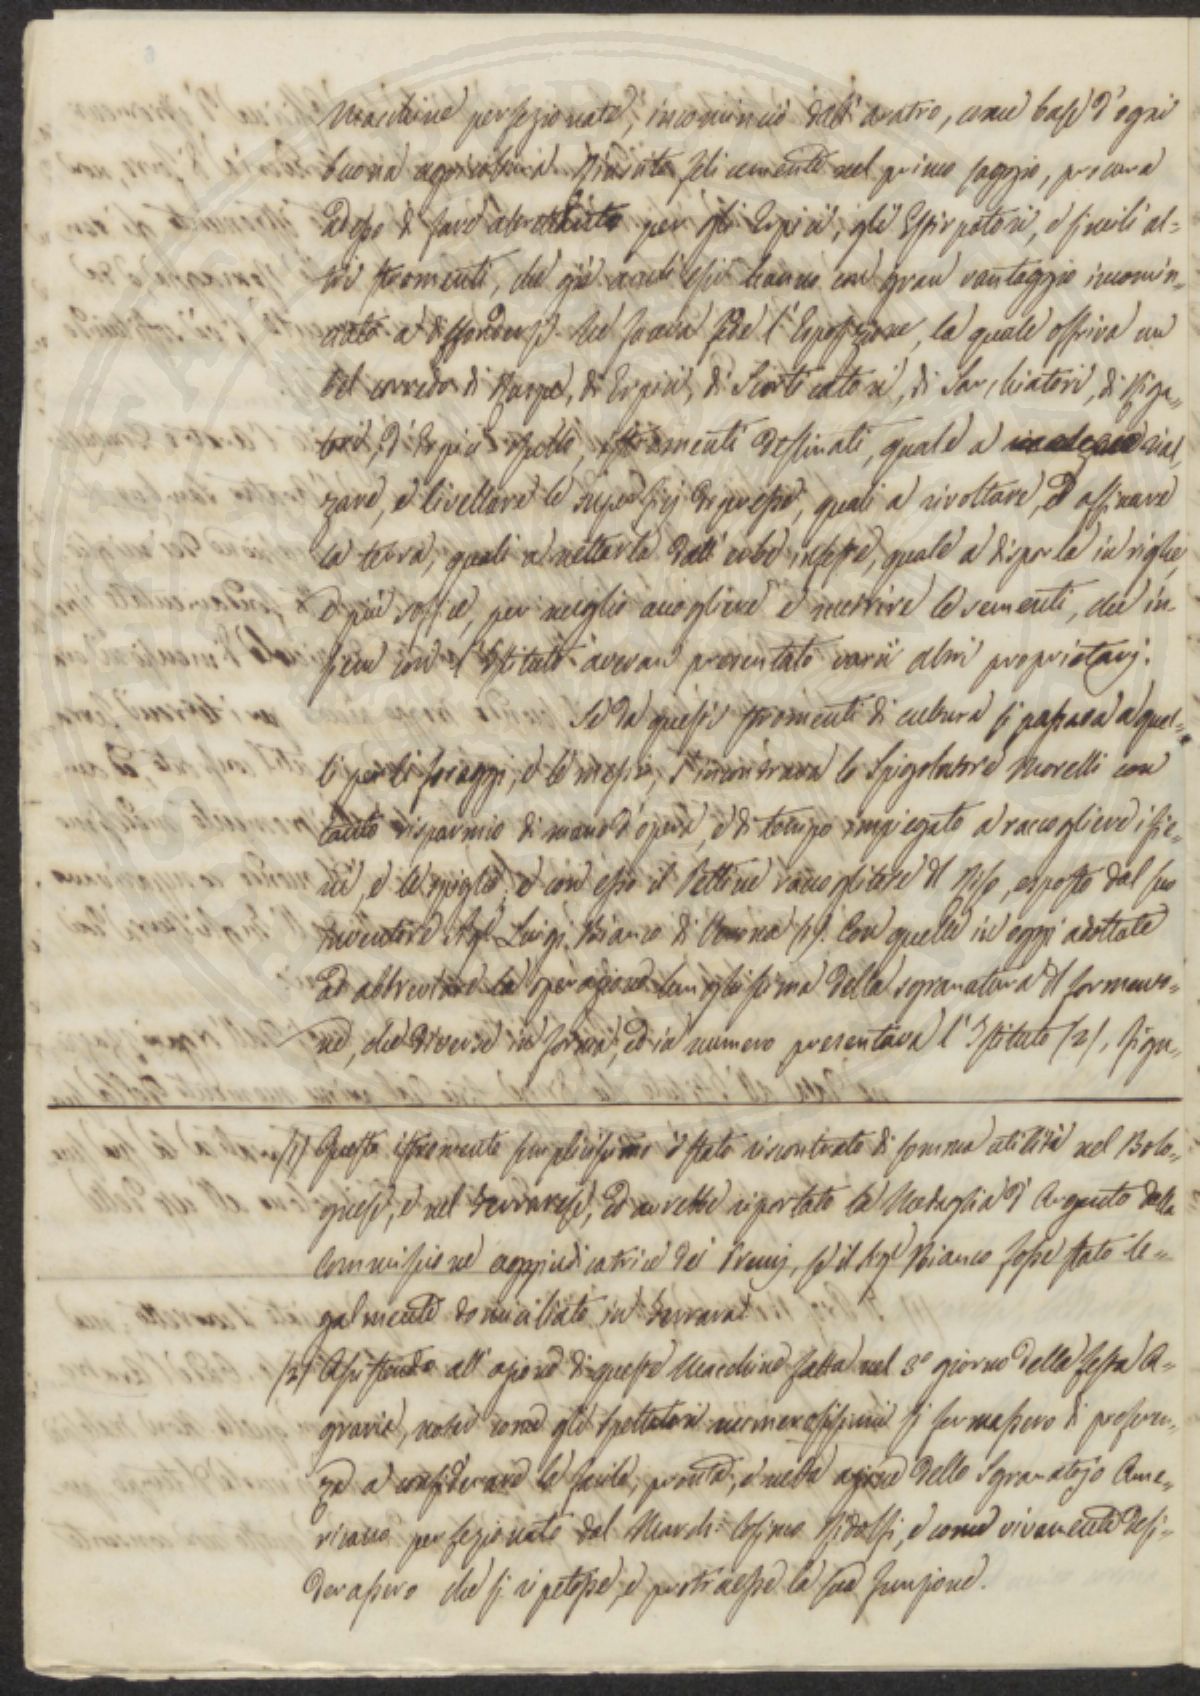 Macchine perfezionate, incominciò dall'aratro, come base d'ogni
buona agricoltura. Riuscito felicemente nel primo saggio, procura
adesso di fare altrettanto per gli Erpici, gli Estirpatori, e simili al=
tri stromenti, che già anch'essi hanno con gran vantaggio incomin=
ciato a diffondersi. Ne faceva fede l'Esposizione, la quale offriva un
bel corredo di Ruspe, di Erpici, di Scorticatori, di Sarchiatori, di Riga=
tori, d'Erpici stromenti destinati, quale a rial=
zare, e livellare le superficj depresse, quali a rivoltare, ed affinare
la terra, quali a nettarla dall'erbe infeste, quale a disporla in righe,
e più soffice, per meglio accogliere e nutrire le sementi, che in=
siem con l'Istituto avevan presentato varii altri proprietarj.
Se da questi stromenti di cultura si passava a quel=
li per li foraggi, e le messi, s'incontrava lo Spigolatore Morelli con
tanto risparmio di mano d'opera, e di tempo impiegato a raccogliere i fie=
ni, e le spiglie; e con esso il Pettine raccoglitore del Riso, esposto dal suo
Inventore Sigr Luigi Bianco di Verona (1). Con quelle in oggi adottate
ad abbreviare la operazione lunghissima della sgranatura del formento=
ne, che diverse in forma, ed in numero presentava l'Istituto (2), figu=
(1) Questo istromento semplicissimo è stato riscontrato di somma utilità nel Bolo=
gnese, e nel Ferrarese, ed avrebbe riportato la Medaglia d'Argento dalla
Commissione aggiudicatrice dei Premj, se il Sigr Bianco fosse stato le=
galmente domiciliato in Ferrara.
(2) Assistendo all'azione di queste Macchine fatta nel 3o giorno della festa A=
graria, notai come gli Spettatori numerosissimi si fermassero di preferen=
za a considerare la facile, pronta, e netta azione dello Sgranatojo Ame=
ricano perfezionato dal March: Cosimo Ridolfi, e come vivamente desi=
derassero che si ripetesse, e protraesse la sua funzione.